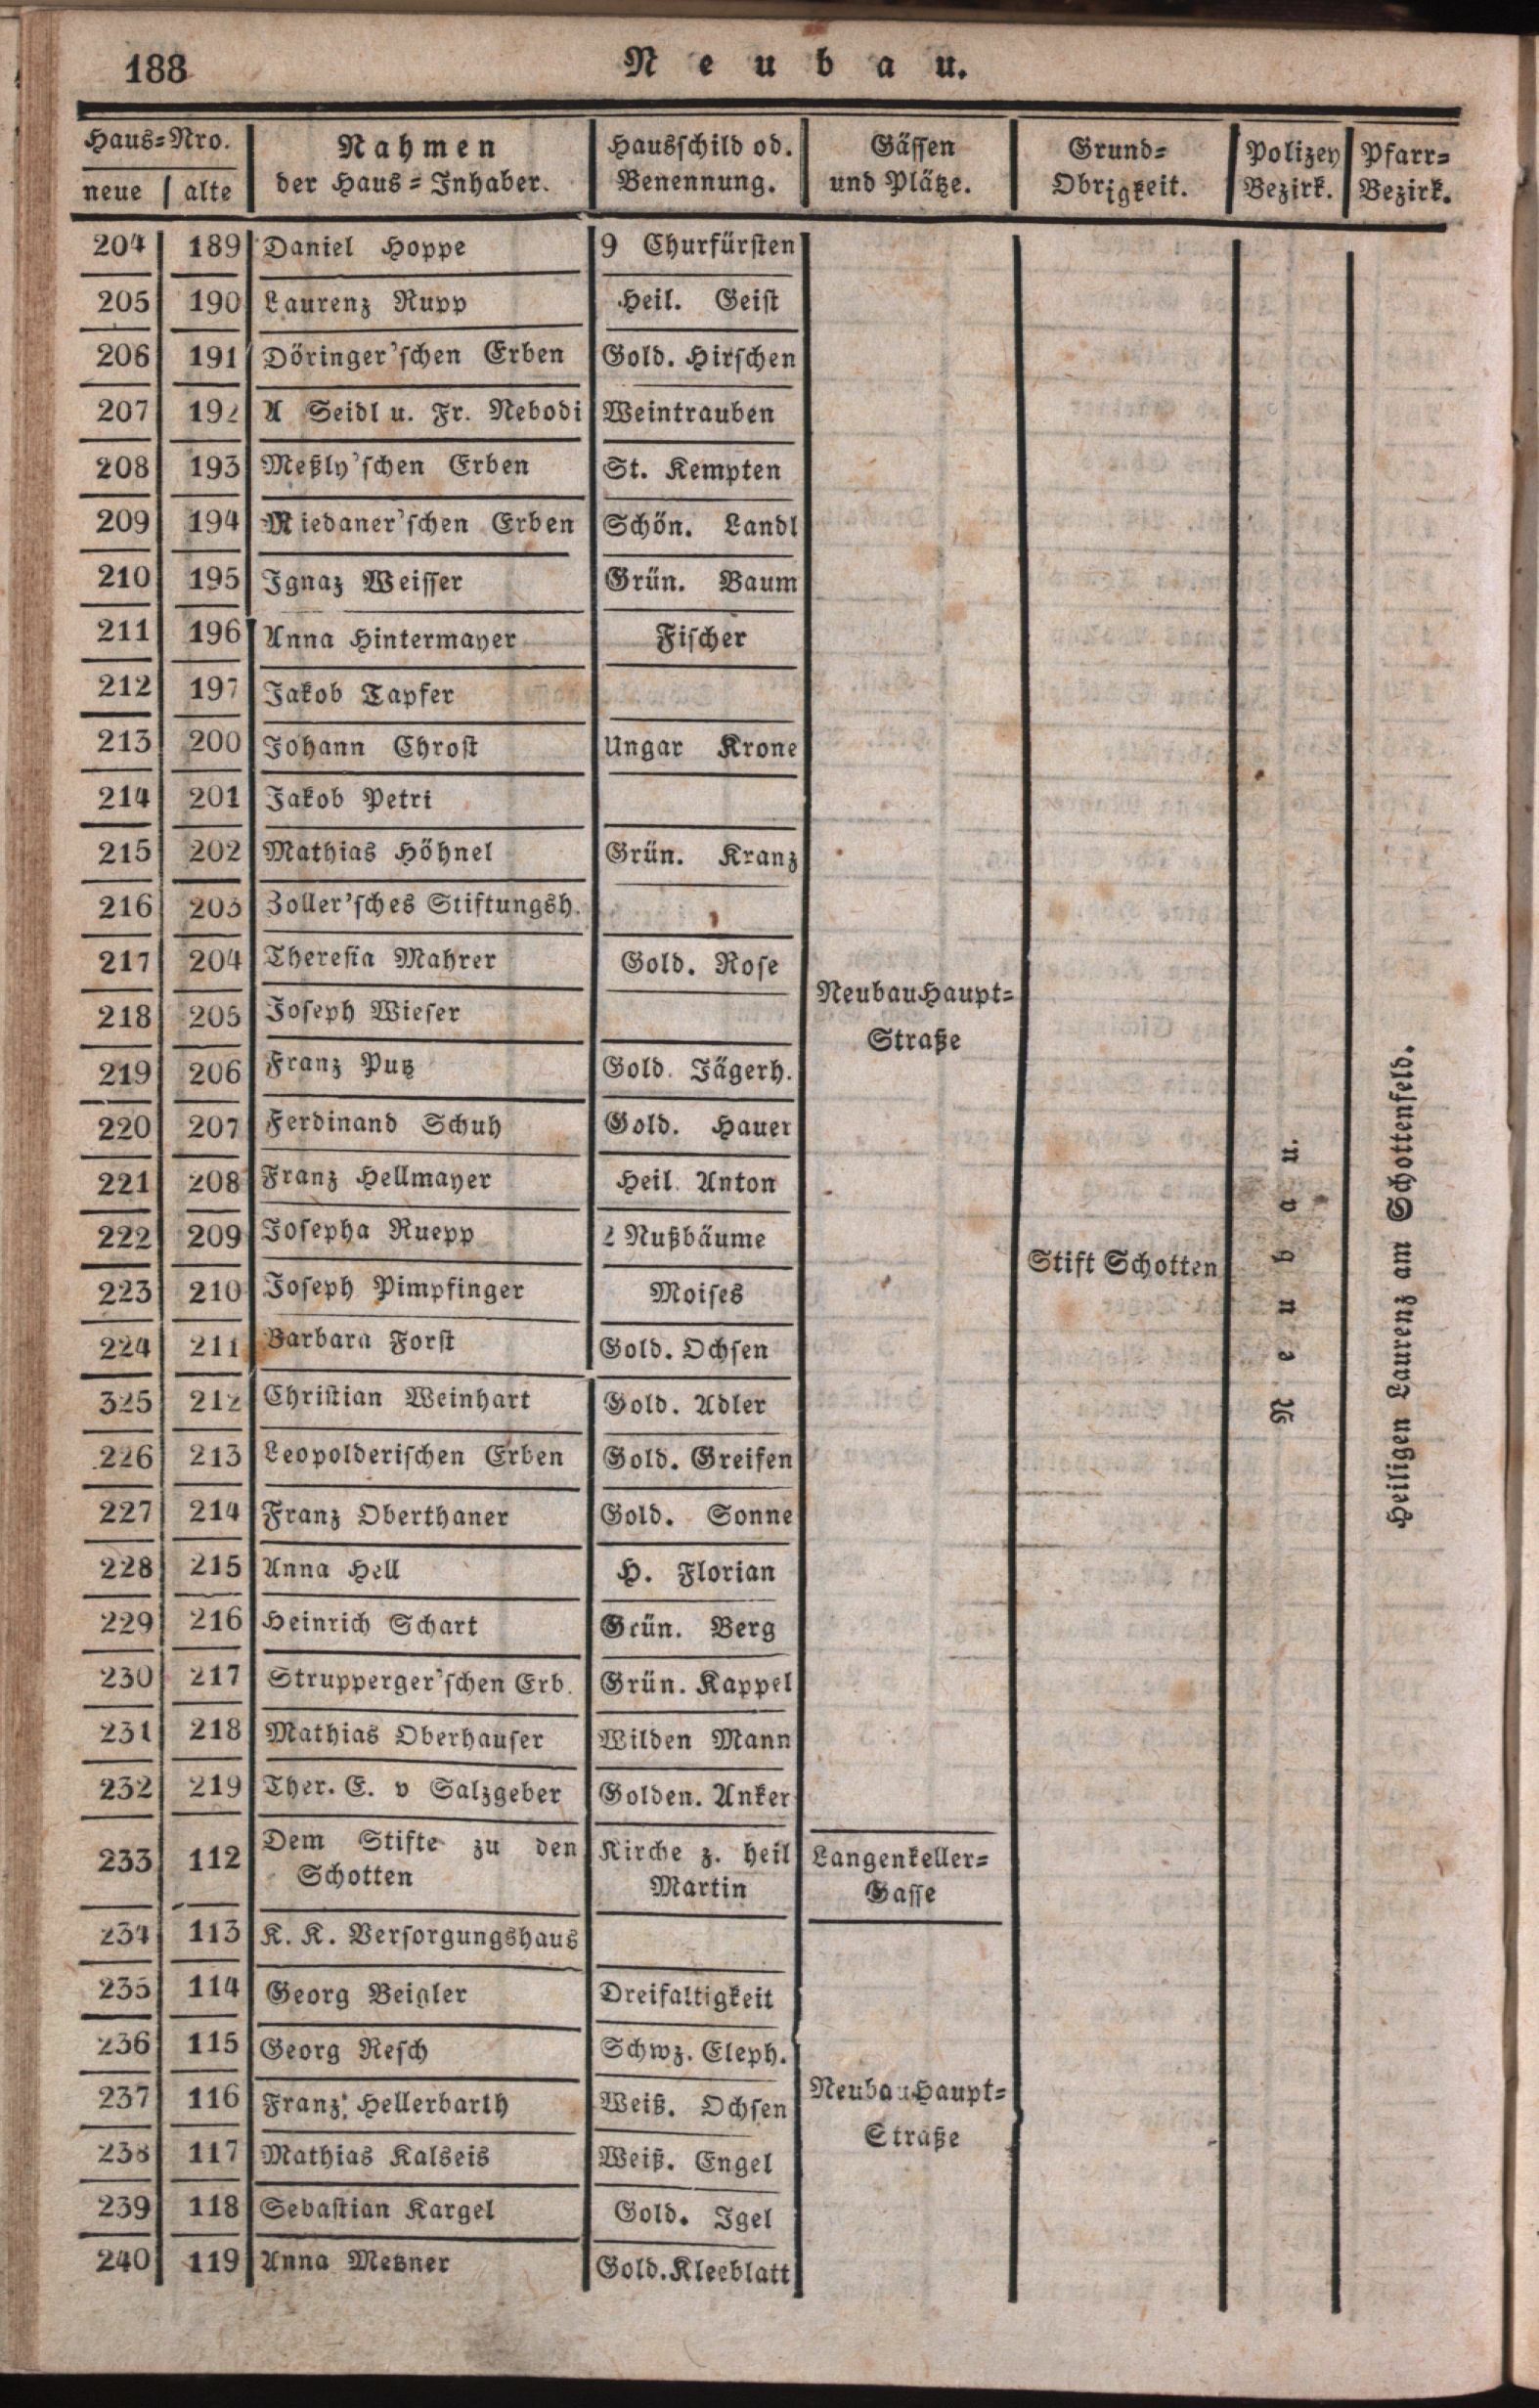 188 Neubau.
Haus=Nro. Nahmen Hausschild od. Gässen Grund= Polizey Pfarr=
neue alte der Haus=Inhaber. Benennung. und Plätze. Obrigkeit. Bezirk. Bezirk.
204 189 Daniel Hoppe 9 Churfürsten
205 190 Laurenz Rupp Heil. Geist
206 191 Döringer'schen Erben Gold. Hirschen
207 192 A Seidl u. Fr. Nebodi Weintrauben
208 193 Meßly'schen Erben St. Kempten
209 194 Riedaner'schen Erben Schön. Landl
210 195 Ignaz Weisser Grün. Baum
211 196 Anna Hintermayer Fischer
212 197 Jakob Tapfer
213 200 Johann Chrost Ungar Krone
214 201 Jakob Petri
215 202 Mathias Höhnel Grün. Kranz
216 203 Zoller'sches Stiftungsh.
217 204 Theresia Mahrer Gold. Rose
NeubauHaupt=
218 205 Joseph Wieser
Straße
219 206 Franz Putz Gold. Jägerh.
220 207 Ferdinand Schuh Gold. Hauer
221 208 Franz Hellmayer Heil. Anton
222 209 Josepha Ruepp 2 Nußbäume
Stift Schotten
Neubau.
Heiligen Laurenz am Schottenfeld.
223 210 Joseph Pimpfinger Moises
224 211 Barbara Forst Gold. Ochsen
325 212 Christian Weinhart Gold. Adler
226 213 Leopolderischen Erben Gold. Greifen
227 214 Franz Oberthaner Gold. Sonne
228 215 Anna Hell H. Florian
229 216 Heinrich Schart Grün. Berg
230 217 Strupperger'schen Erb. Grün. Kappel
231 218 Mathias Oberhauser Wilden Mann
232 219 Ther. E. v Salzgeber Golden. Anker
233 112 Dem Stifte zu den Kirche z. heil Langenkeller=
Schotten Martin Gasse
234 113 K. K. Versorgungshaus
235 114 Georg Beigler Dreifaltigkeit
236 115 Georg Resch Schwz. Eleph.
237 116 Franz Hellerbarth Weiß. Ochsen NeubauHaupt=
Straße
238 117 Mathias Kalseis Weiß. Engel
239 118 Sebastian Kargel Gold. Igel
240 119 Anna Metzner Gold.Kleeblatt